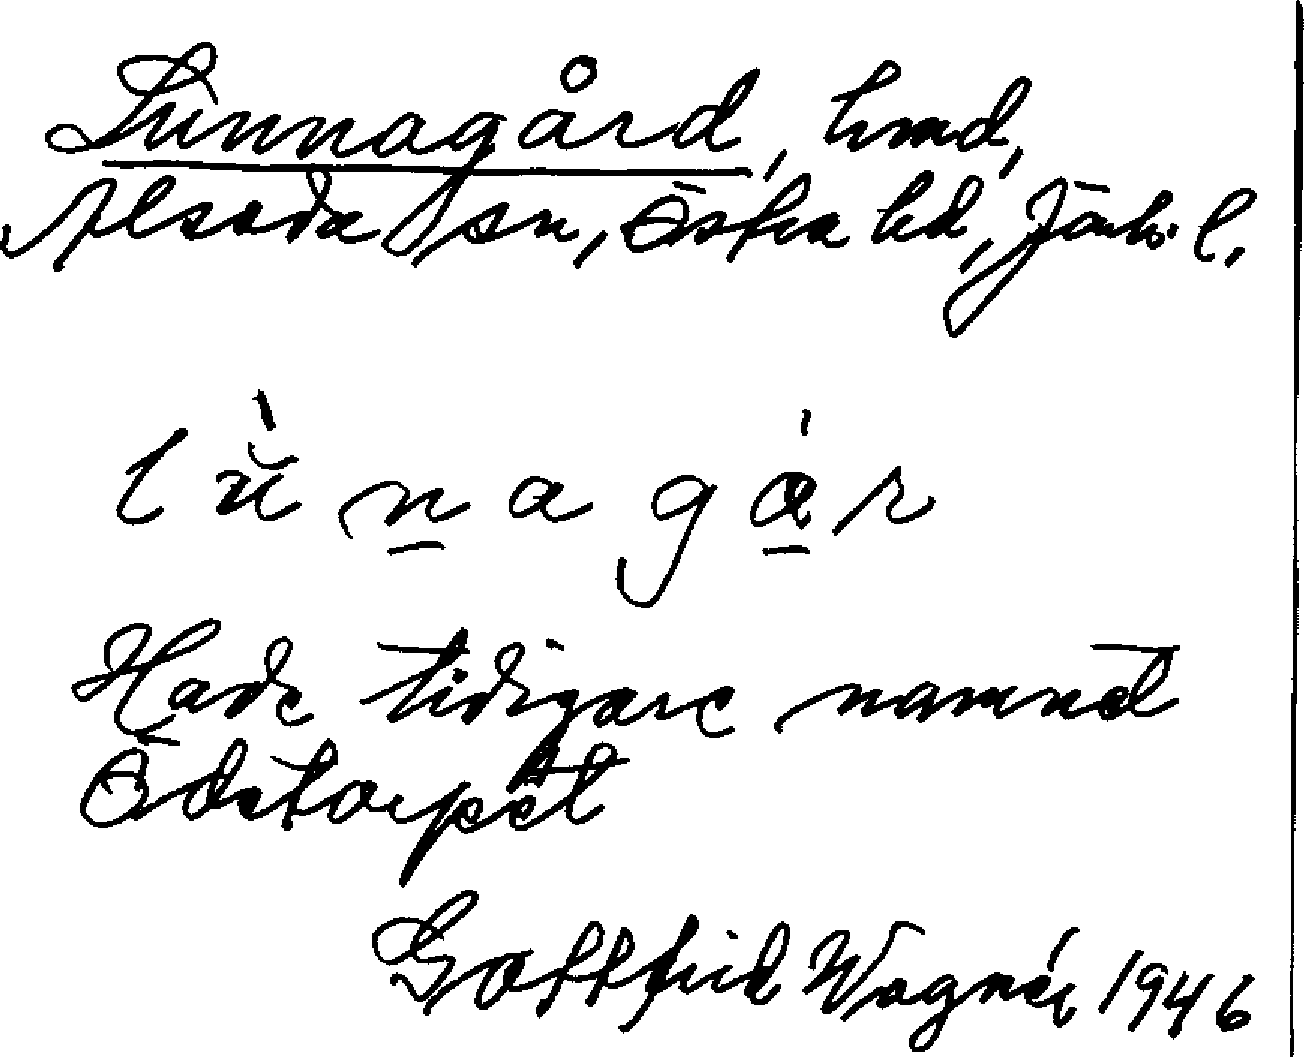 Lunnagård, hmd,
Alseda sn, Östra hd, Jönk. l.
lu̇̆n̲agȧ̲r
Hade tidigare namnet
Ödetorpet
Gottfrid Wagnér 1946